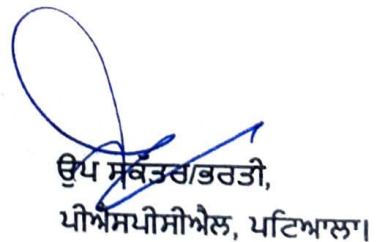 ਉਪ ਸਕੱਤਰ/ਭਰਤੀ,
ਪੀਐਸਪੀਸੀਐਲ, ਪਟਿਆਲਾ।